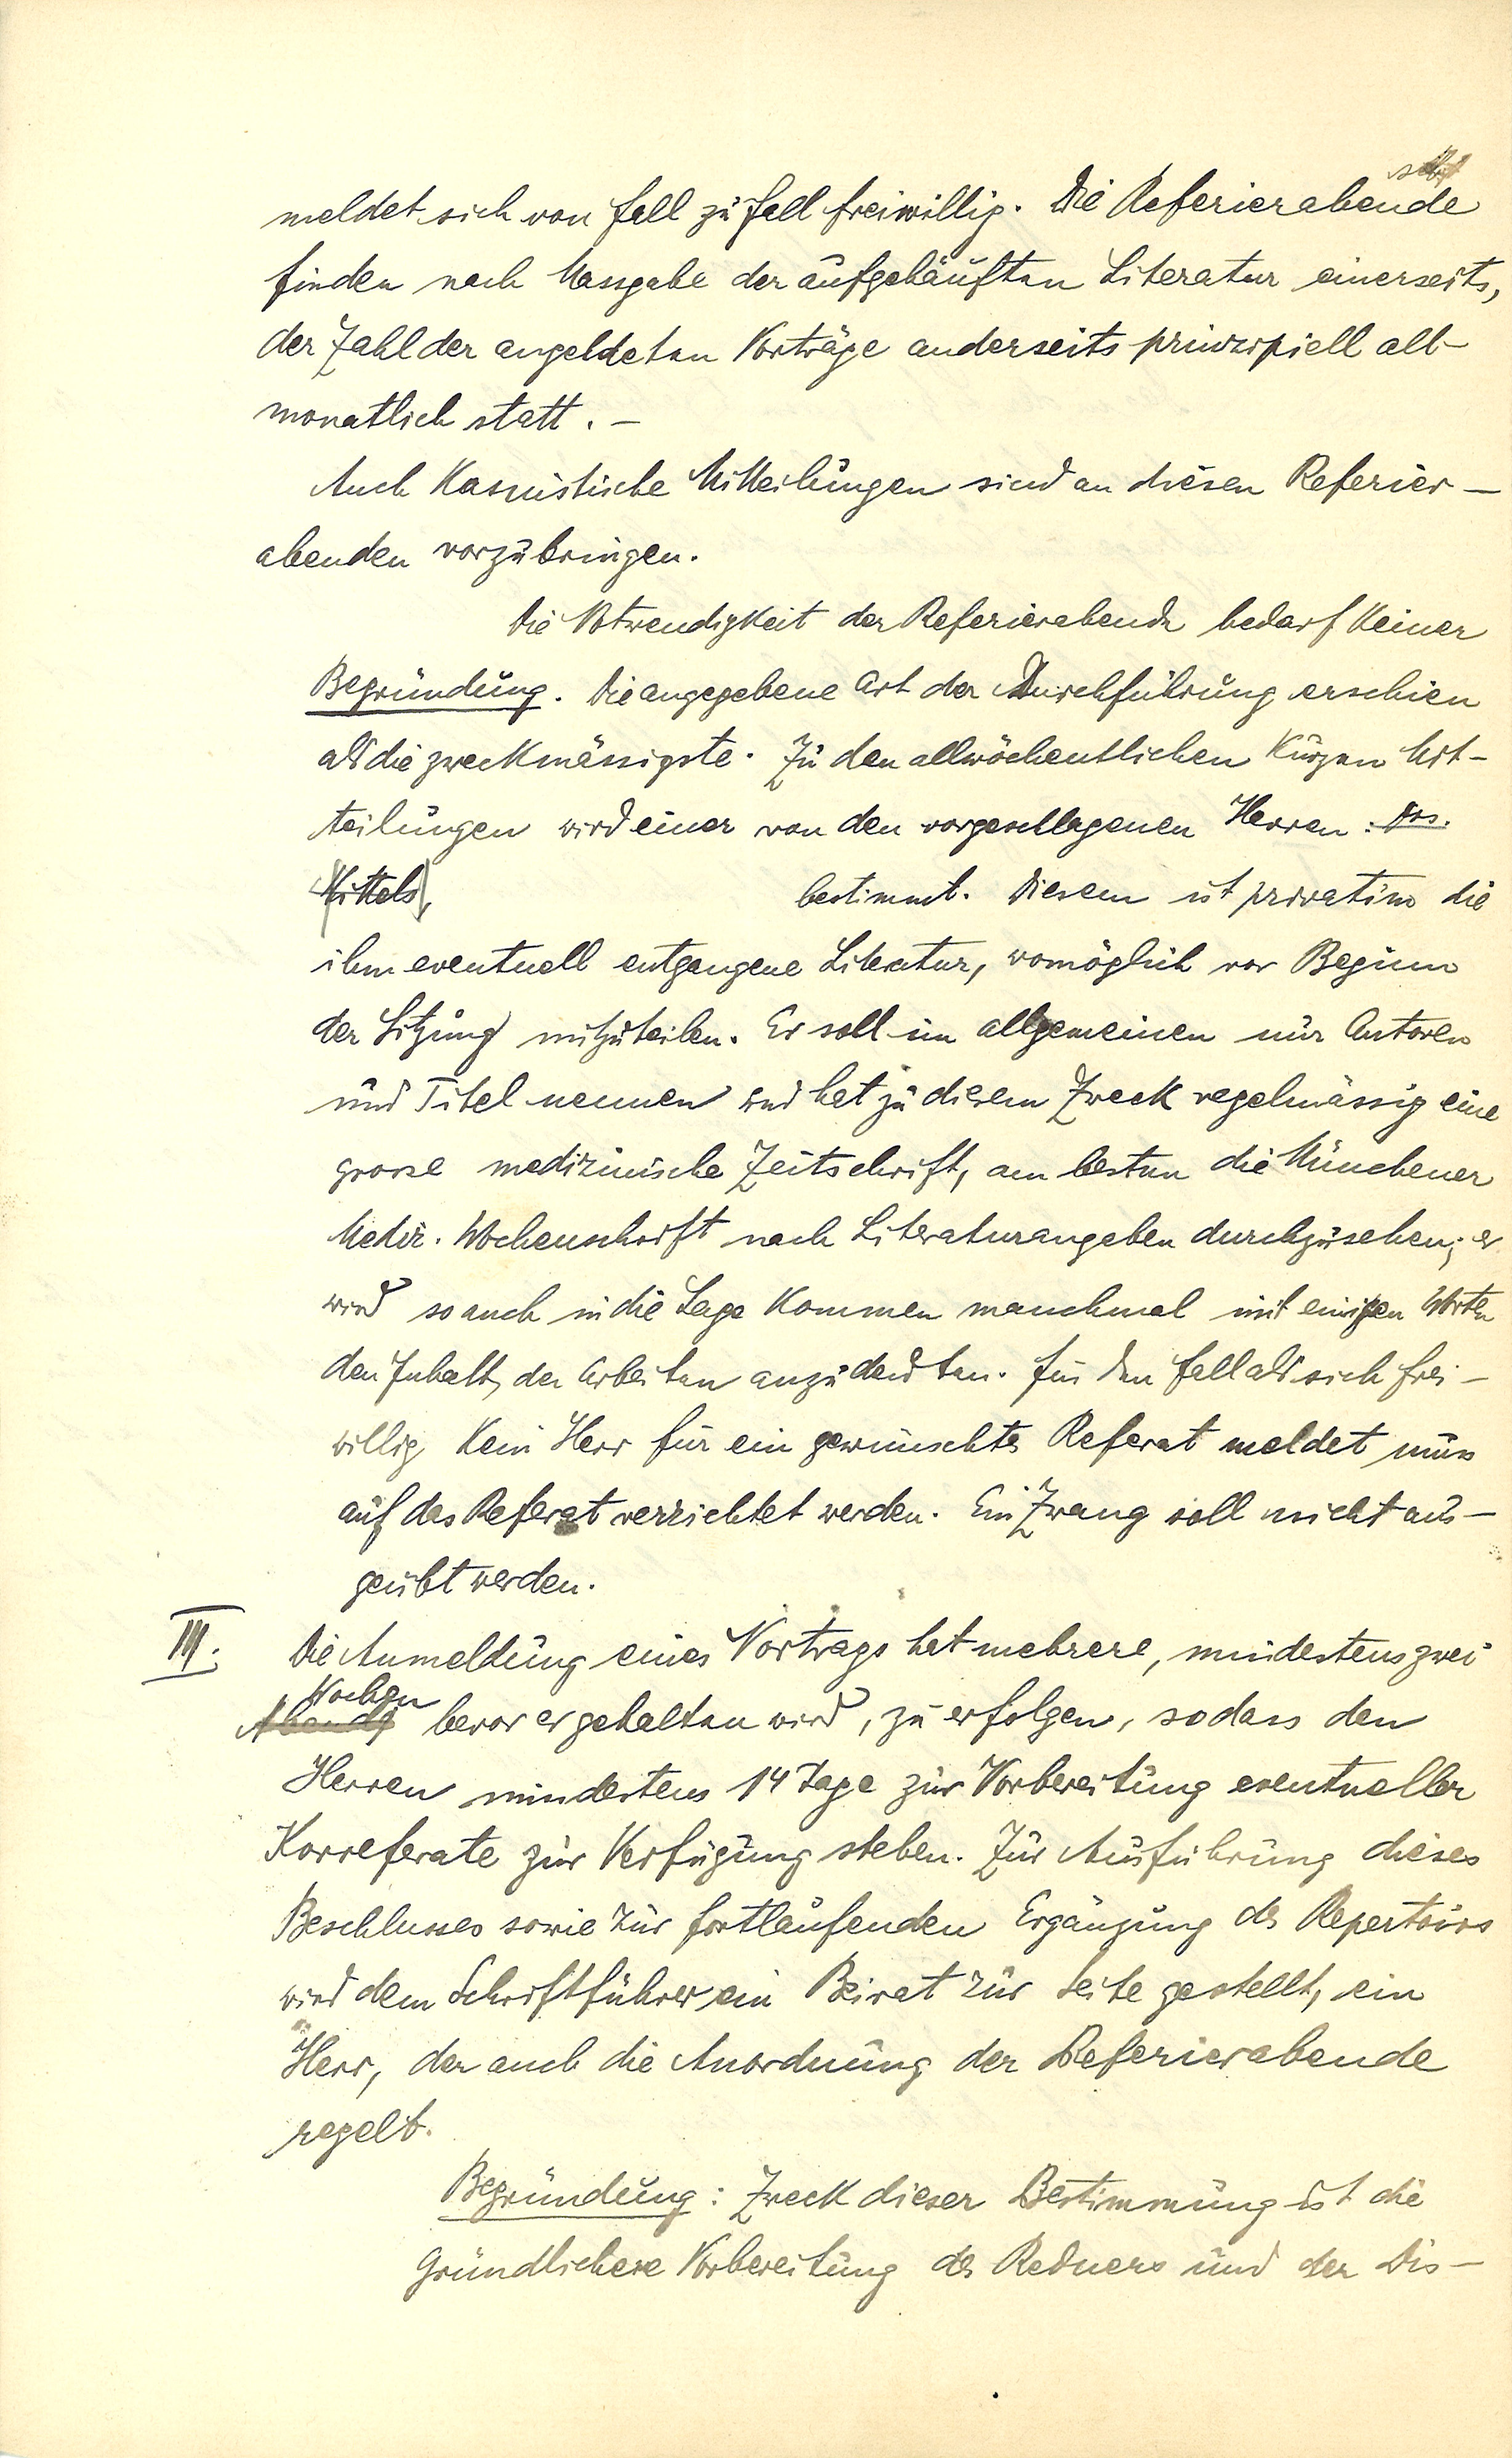 meldet sich von Fall zu Fall freiwillig. Die Referierabende
finden nach Massgabe der aufgehäuften Literatur einerseits,
der Zahl der angeldeten Vorträge anderseits prinzipiell all-
monatlich statt. –
Auch Kasuistische Mitteilungen sind an diesen Referier-
abenden vorzubringen.
Die Notwendigkeit der Referierabende bedarf Keiner
Begründung. Die angegebene Art der Durchführung erschien
als die zweckmässigste. Zu den allwöchentlichen Kurzen Mit-
teilungen wird einer von den vorgeschlagenen Herren:
Hittels bestimmt. Diesem ist privatim die
ihm eventuell entgangene Literatur, womöglich vor Beginn
der Sitzung mitzuteilen. Er soll im allgemeinen nur Autoren
und Titel nennen und hat zu diesem Zweck regelmässig eine
grosse medizinische Zeitschrift, am besten die Münchener
Mediz. Wochenschrift nach Literaturangaben durchzusehen; er
wird so auch in die Lage Kommen manchmal mit einigen Worten
den Inhalt der Arbeiten anzudeuten. Für den Fall als sich frei-
willig Kein Herr für ein gewünschtes Referat meldet muss
auf das Referat verzichtet werden. Ein Zwang soll nicht aus-
geübt werden.
III. Die Anmeldung eines Vortrags hat mehrere, mindestens zwei
Wochen
Abende bevor er gehalten wird, zu erfolgen, sodass den
Herren mindestens 14 Tage zur Vorbereitung eventueller
Korreferate zur Verfügung stehen. Zur Ausführung dieses
Beschlusses sowie zur fortlaufenden Ergänzung des Repertoirs
wird dem Schriftführer ein Beirat zur Seite gestellt, ein
Herr, der auch die Anordnung der Referierabende
regelt.
Begründung: Zweck dieser Bestimmung ist die
Gründlichere Vorbereitung des Redners und der Dis-